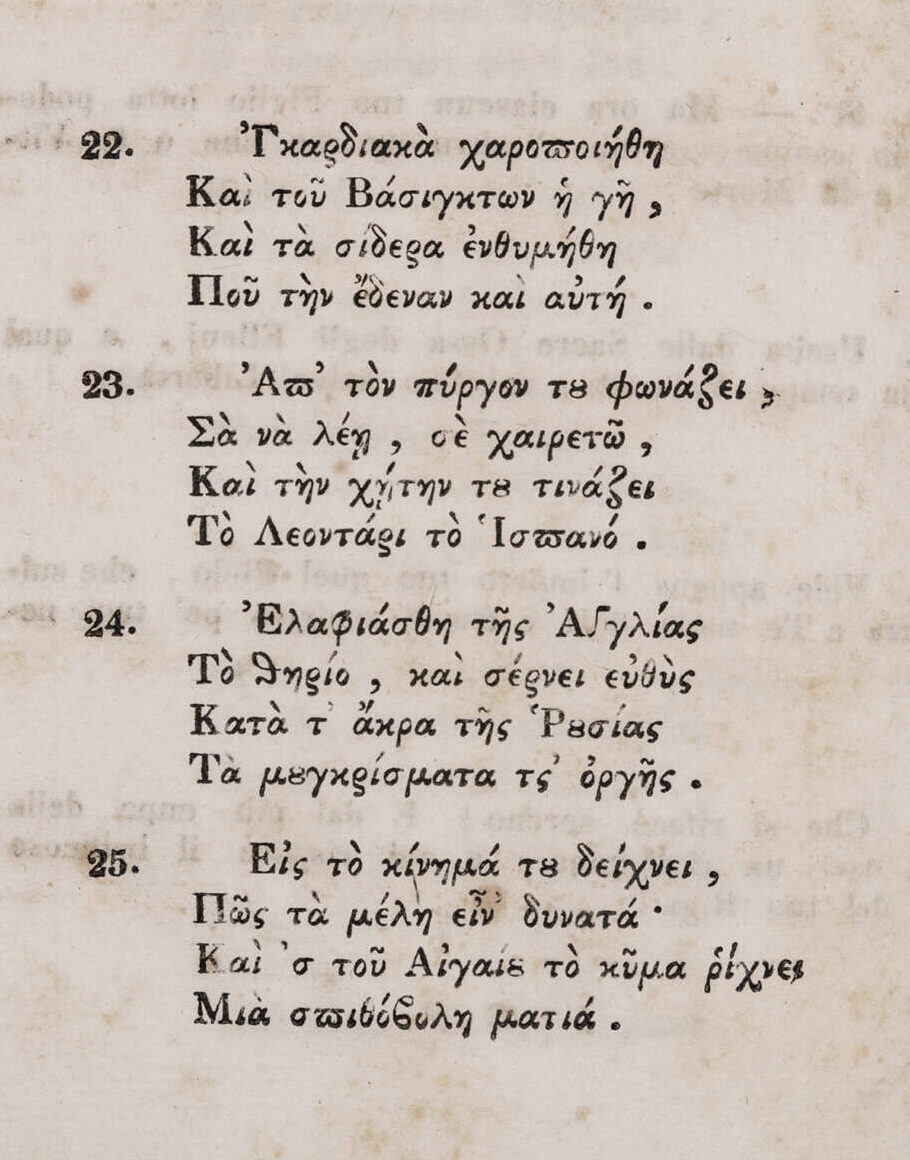 22. Ἐγκαρδιακὰ χαροποιήθη
Καὶ τοῦ Βάσιγκτων ἡ γῆ ,
Καὶ τὰ σίδερα ἐνθυμήθη
Ποῦ τὴν ἔδεναν καὶ αὐτή .
23. Ἀπ' τὸν πύργον τȣ φωνάζει ,
Σὰ νὰ λέῃ , σὲ χαιρετῶ ,
Καὶ τὴν χήτην τȣ τινάζει
Τὸ Λεοντάρι τὸ Ἱσπανό .
24. Ἐλαφιάσθη τῆς Ἀγγλίας
Τὸ θηρίο , καὶ σέρνει εὐθὺς
Κατὰ τ' ἄκρα τῆς Ῥȣσίας
Τὰ μȣγκρίσματα τς' ὀργῆς .
25. Εἰς τὸ κίνημά τȣ δείχνει ,
Πῶς τὰ μέλη εἶν' δυνατά ·
Καὶ 'σ τοῦ Αἰγαίȣ τὸ κῦμα ῥίχνει
Μιὰ σπιθόβολη ματιά .